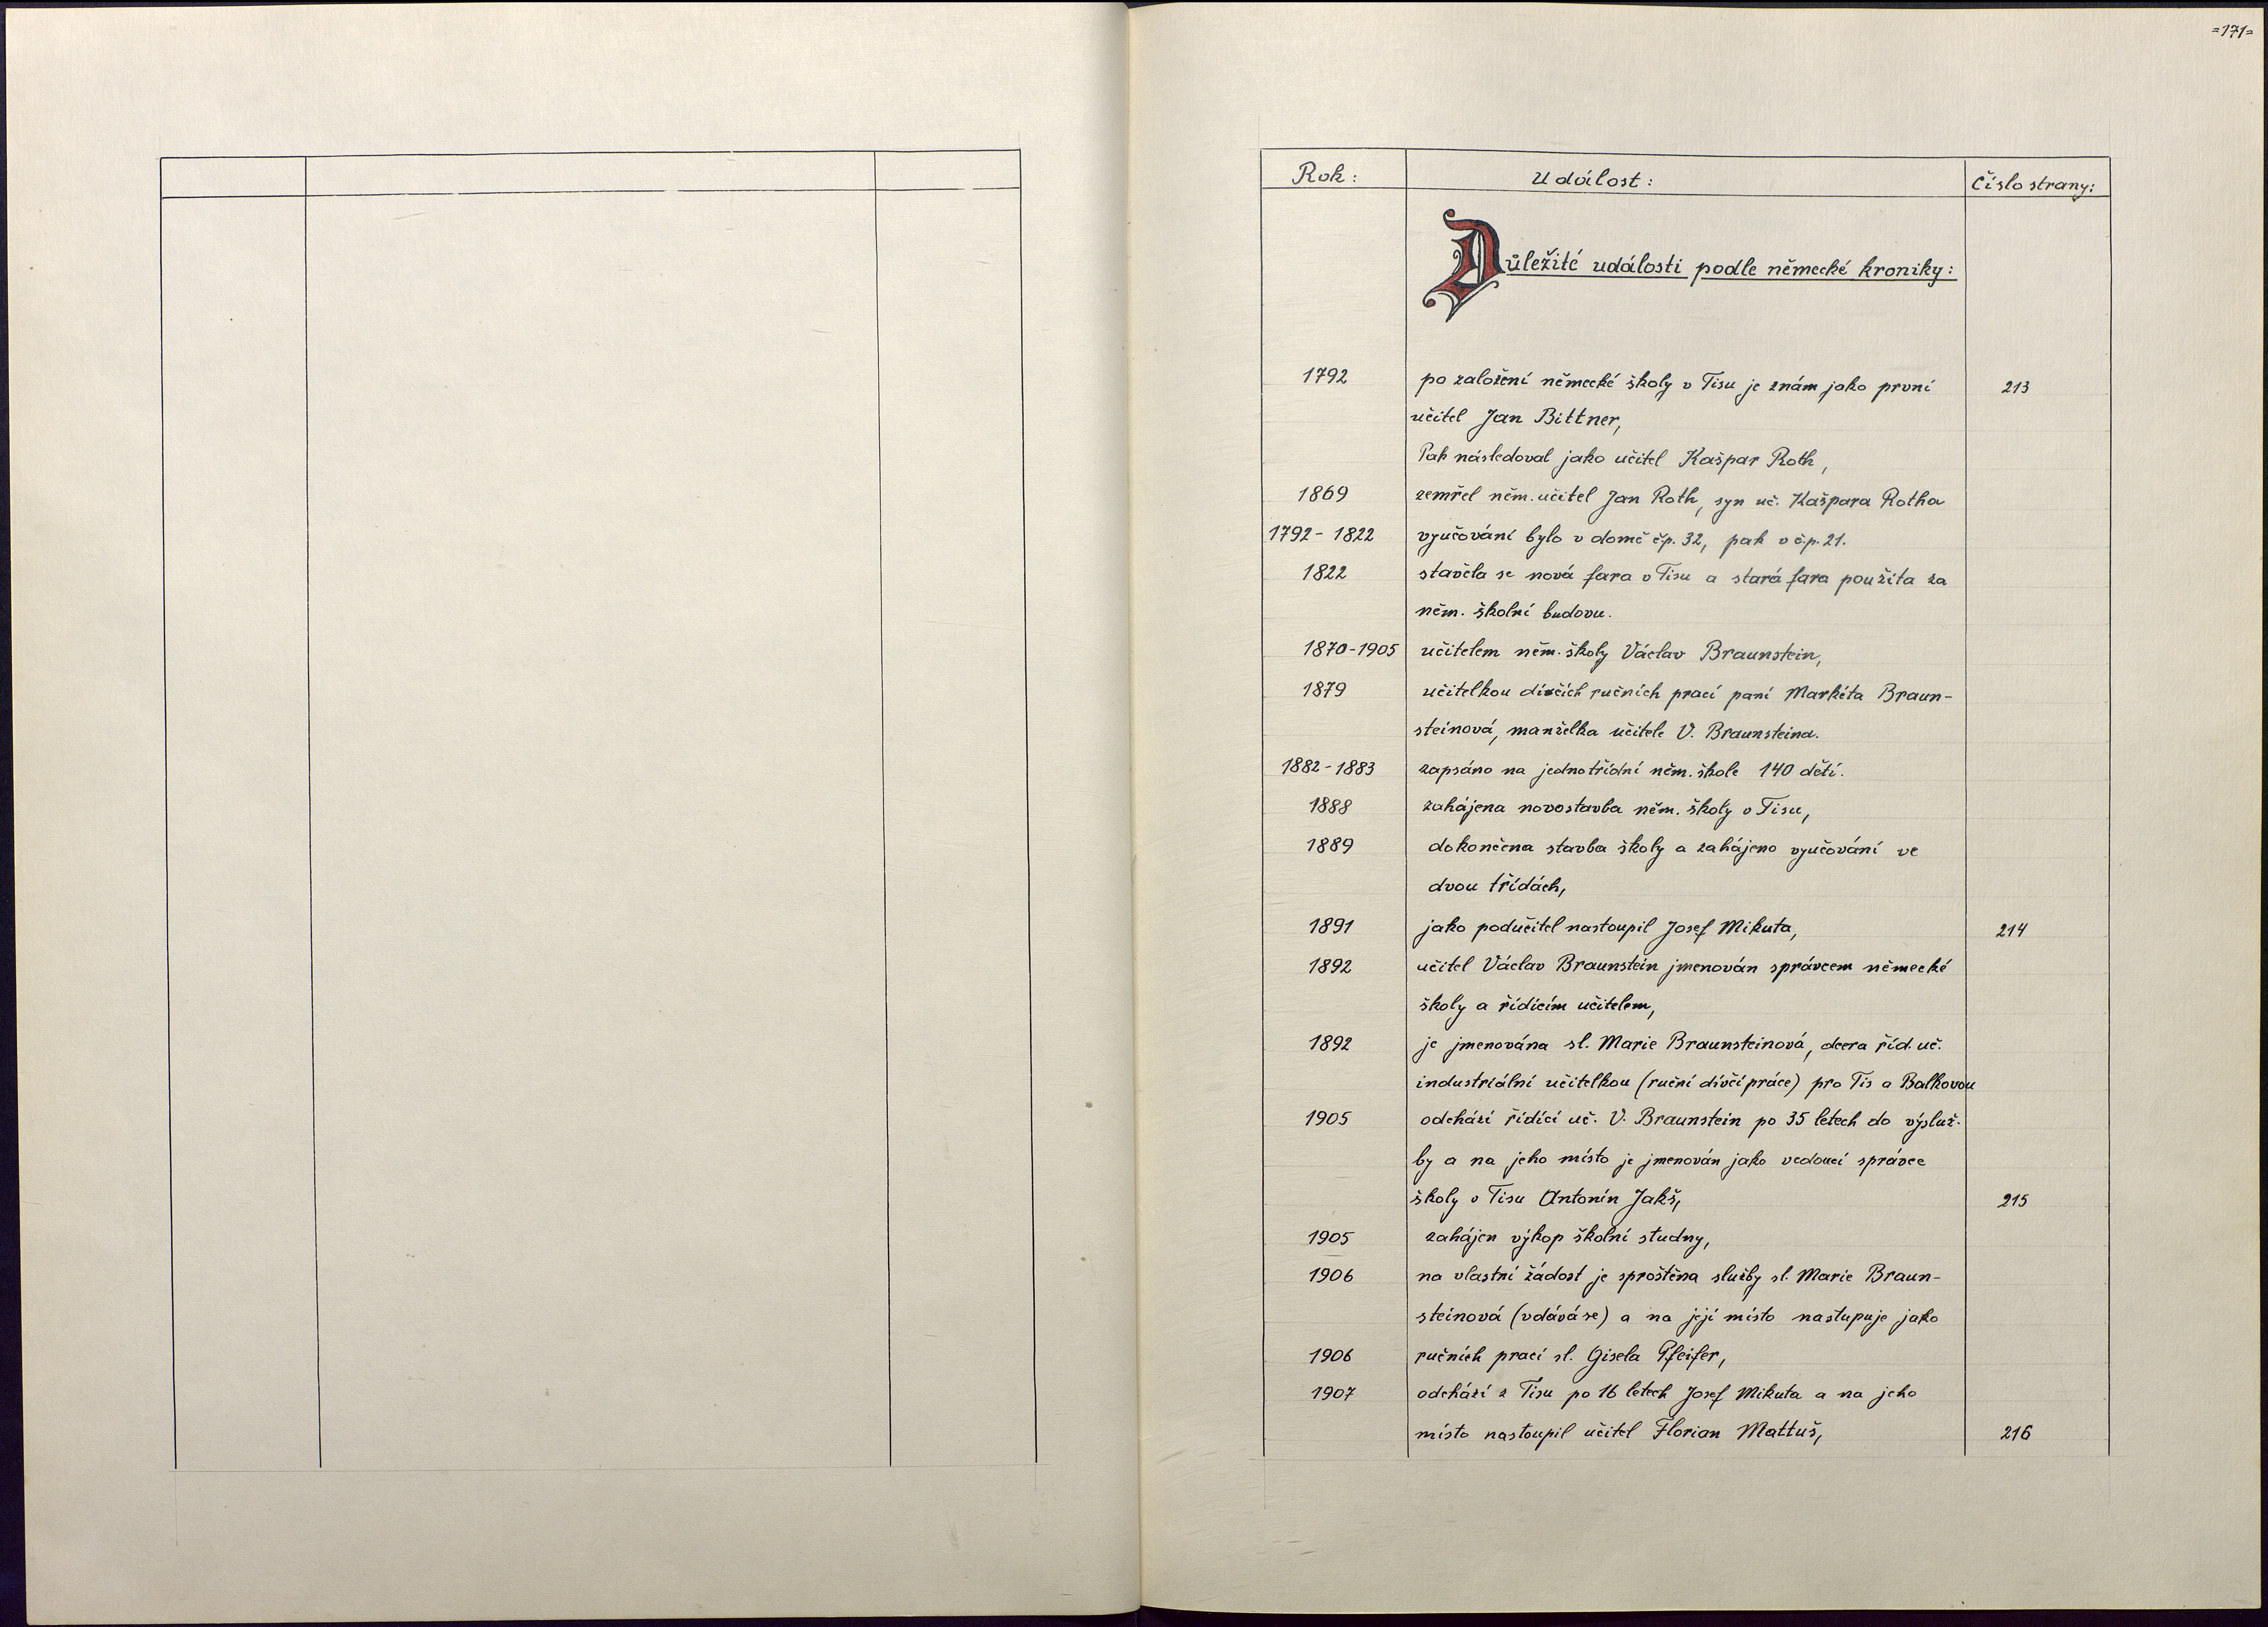 =171=
Rok: Událost: Číslo strany:
Důležité události podle německé kroniky:
1792 po založení německé školy v Tisu je znám jako první 213
učitel Jan Bittner,
Pak následoval jako učitel Kašpar Roth,
1869 zemřel něm. učitel Jan Roth, syn uč. Kašpara Rotha
1792 - 1822 vyučování bylo v domě čp. 32, pak v č.p. 21.
1822 stavěla se nová fara v Tisu a stará fara použita za
něm. školní budovu.
1870-1905 učitelem něm. školy Václav Braunstein,
1879 učitelkou dívčích ručních prací paní Markéta Braun-
steinová, manželka učitele V. Braunsteina.
1882 - 1883 zapsáno na jednotřídní něm. škole 140 dětí.
1888 zahájena novostavba něm. školy v Tisu,
1889 dokončena stavba školy a zahájeno vyučování ve
dvou třídách,
1891 jako podučitel nastoupil Josef Mikuta, 214
1892 učitel Václav Braunstein jmenován správcem německé
školy a řídícím učitelem,
1892 je jmenována sl. Marie Braunsteinová, dcera říd. uč.
industriální učitelkou (ruční dívčí práce) pro Tis a Balkovou
1905 odchází řídící uč. V. Braunstein po 35 letech do výsluž-
by a na jeho místo je jmenován jako vedoucí správce
školy v Tisu Antonín Jakš, 215
1905 zahájen výkop školní studny,
1906 na vlastní žádost je sproštěna služby sl. Marie Braun-
steinová (vdává se) a na její místo nastupuje jako
1906 ručních prací sl. Gisela Pfeifer,
1907 odchází z Tisu po 16 letech Josef Mikuta a na jeho
místo nastoupil učitel Florian Mattuš, 216